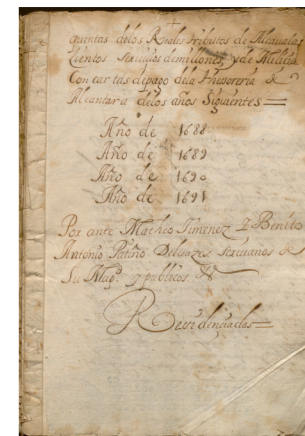 quentas delos Reales tributos de Alcaualas
Cientos seruiçios demillones, y de Miliçia
Con cartas depago dela thusoreria de
Alcantara delos años Siguientes =
Año de 1688
Año de 1689
Año de 1690
Año de 1691
Por ante Matheo Ximenez y Benito
Antonio Patiño escriuanos de
Su Magd. y publicos
Residençiadas =